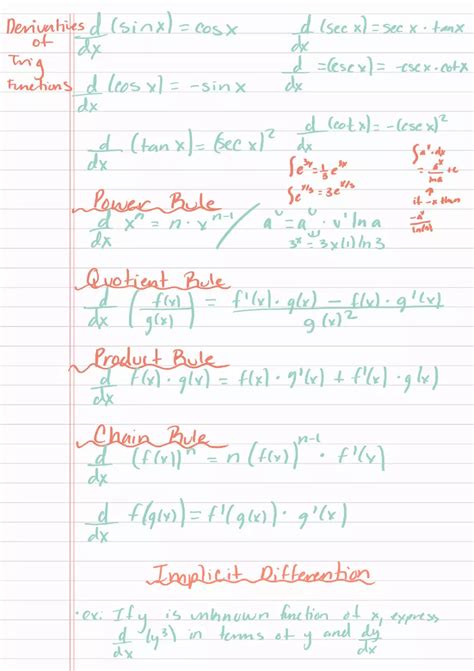 Derivatives of Trig Functions
d/dx (sinx) = cosx
d/dx (sec x) = sec x · tanx
d/dx (cos x) = -sinx
d/dx =(csc x) = -cscx·cotx
d/dx (tan x) = (sec x)²
d/dx (cotx) = -(csc x)²
∫e^3x = 1/3 e^3x
∫e^x/3 = 3e^x/3
∫aˣ·dx
= aˣ/lna + c
if -x then
-aˣ/ln(a)
Power Rule
d/dx xⁿ = n · xⁿ⁻¹ / aᵛ = aᵛ · v' ln a
3ˣ = 3x(1) ln 3
Quotient Rule
d/dx (f(x)/g(x)) = f'(x) · g(x) - f(x) · g'(x) / g(x)²
Product Rule
d/dx f(x) · g(x) = f(x) · g'(x) + f'(x) · g(x)
Chain Rule
d/dx (f(x))ⁿ = n (f(x))ⁿ⁻¹ · f'(x)
d/dx f(g(x)) = f'(g(x)) · g'(x)
Implicit Differention
· ex: If y is unknown function of x, express
d/dx (y³) in terms of y and dy/dx